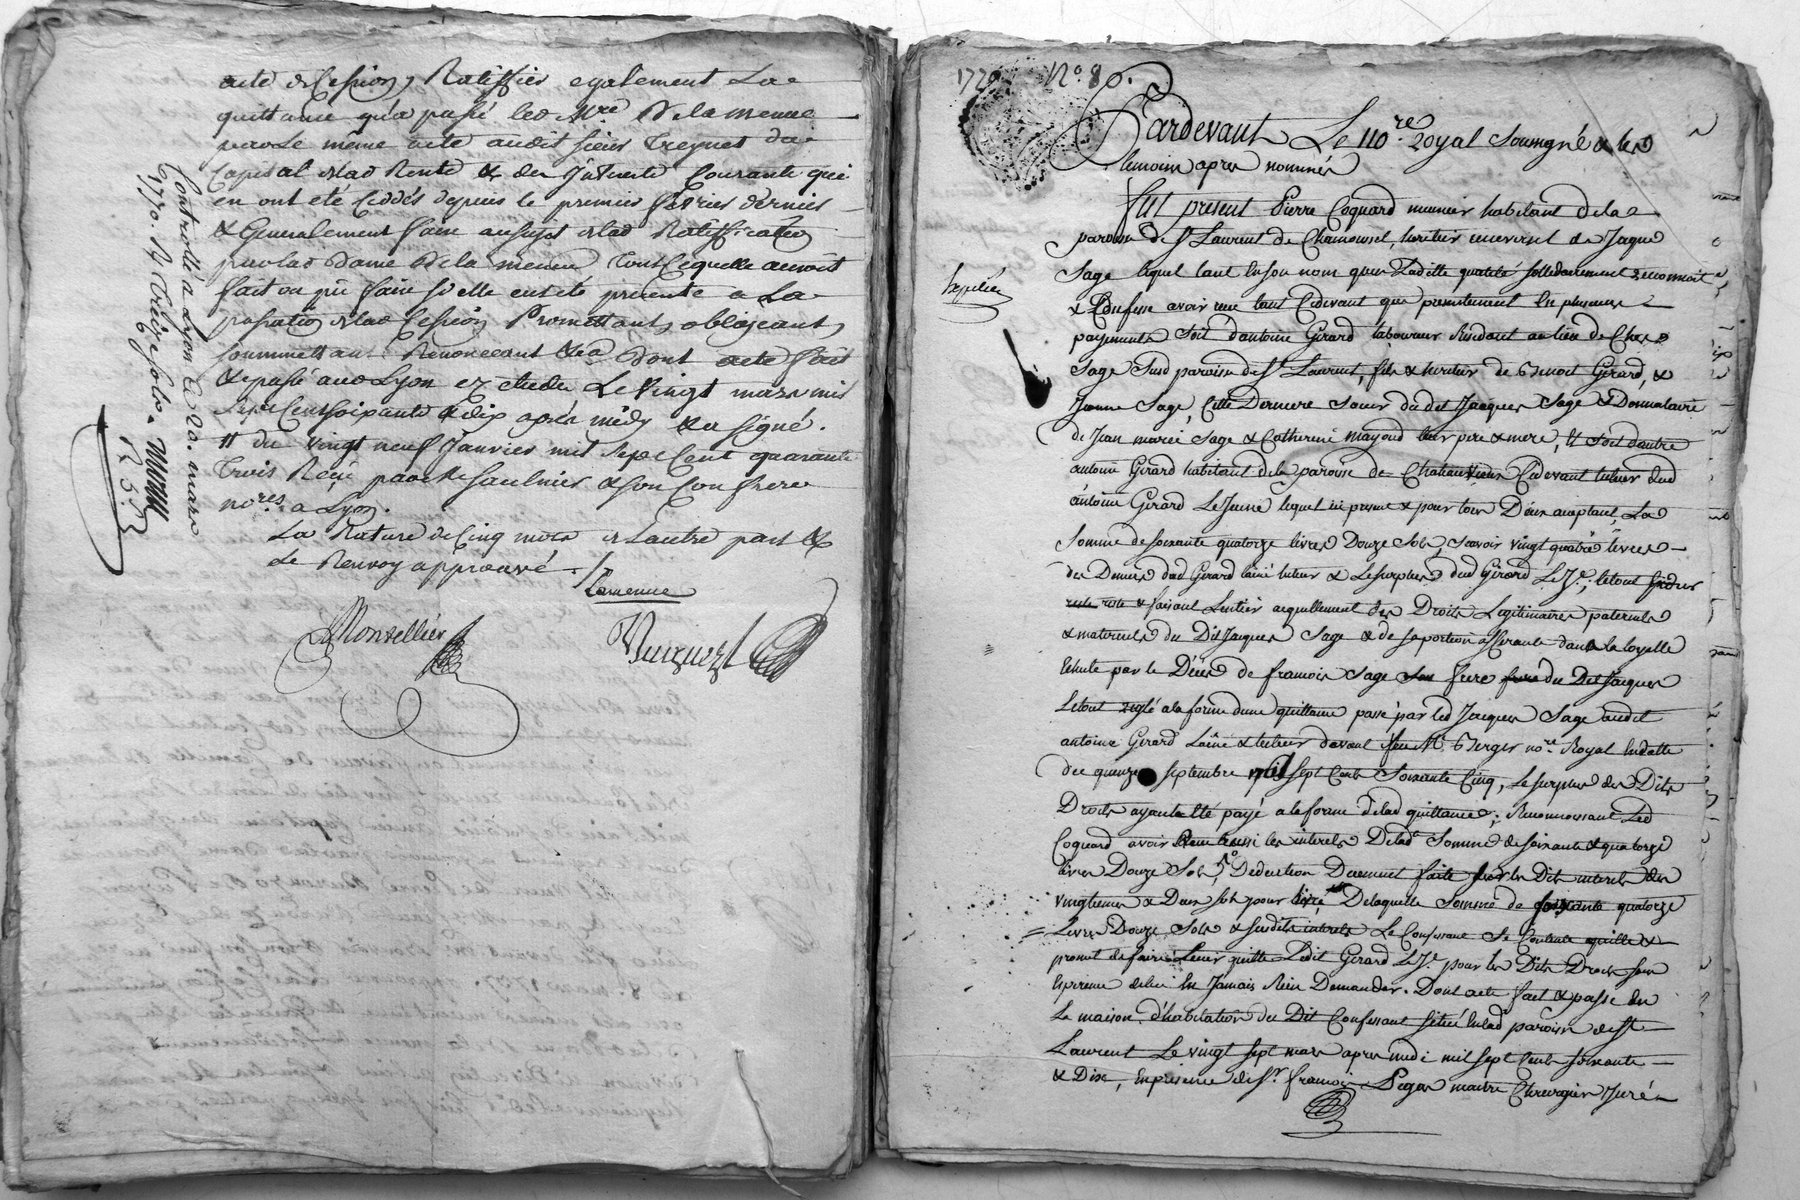 acte de Cession, Ratiffier egalement La
quittance qu'a passé led. Mre Delamenue
par le même acte audit sieur Treynet du
Capital de lad Rente & des jnterets Courants qui
en ont été Ceddés depuis le premier fevrier dernier
& Generalement faire au sujet de lad Ratiffication
par lad Dame Delamenue tout ce quelle auroit
fait ou pû faire si elle eut été presente a La
passation de lad Cession Promettant, obligeant,
soummettant Renonceant &ca Dont acte fait
& passé aud Lyon ez etudes Le Vingt mars mil
sept Cent soixante & dix après midy & a signé.
# du vingt neuf Janvier mil sept Cent quarante
trois Reçu par Me Saulnier & son Confrere
nores a Lyon.
La Rature de Cinq mots de Lautre part &
Le Renvoy approuvé
Lamenue
Montellier
Controllé a Lyon Le 20. mars
1770. R
1770 No. 80.
Pardevant Le Nore Royal Soussigné & les
temoins apres nommés
fut present Pierre Coquard meunier habitant de la
paroisse de St Laurent de Chamousset, heritier universel de Jaque
Sage lequel tant en son nom qu'en Laditte qualité sollidairement reconnoit
expediée
& Confesse avoir reçu tant Cidevant que presentement en plusieurs
payements soit d'antoine Girard laboureur Residant au lieu de Chez
Sage susd paroisse de St Laurent, fils & heritier de Benoit Girard, &
Jeanne Sage, Cette Derniere Soeur du dit Jacques Sage & Donnataire
de Jean marie Sage & Catherine mayoud leur pere & mere, Et soit d'autre
antoine Girard habitant de la paroisse de Chateauvieux Cidevant tuteur dud
antoine Girard Le Jeune lequel ici present & pour tous Deux acceptant, La
Somme de soixante quatorze livres Douze Sols, scavoir vingt quatre livres
des Deniers dud Girard lainé tuteur & Le surplus dud Girard Le Je; le tout
reste & faisant L'entier acquittement des Droits Legitimaires paternels
& maternels du Dit Jacques Sage & de sa portion afferante dans la loyalle
Echute par le Décès de francois Sage frere du Dit Jacques
Le tout reglé a la forme dune quittance passé par led Jacques Sage audit
antoine Girard Lainé & tuteur davant feu Me Berger nore Royal En datte
du quinze septembre mil sept Cents Soixante Cinq, Le surplus des Dits
Droits ayant été payé a la forme de lad quittance; Reconnoissant Led
Coquard avoir Reçu aussi les interets De lade Somme de soixante & quatorze
livres Douze Sols, Deduction Duement faite sur les Dits interets des
vingtiemes & Deux sols pour livre, De laquelle Somme de soixante quatorze
Livres Douze Sols & susdits interets Le Confessant Se Contente quitte &
promet de faire tenir quitte Ledit Girard Le Je pour les Dits Droits sans
Esperence de lui En Jamais Rien Demander. Dont acte fait & passé en
La maison d'habitation du Dit Confessant Située En lade paroisse de St
Laurent Le vingt sept mars apres midi mil sept Cents soixante
& Dix, En presence de Sr francois Legas maitre Chirurgien Juré